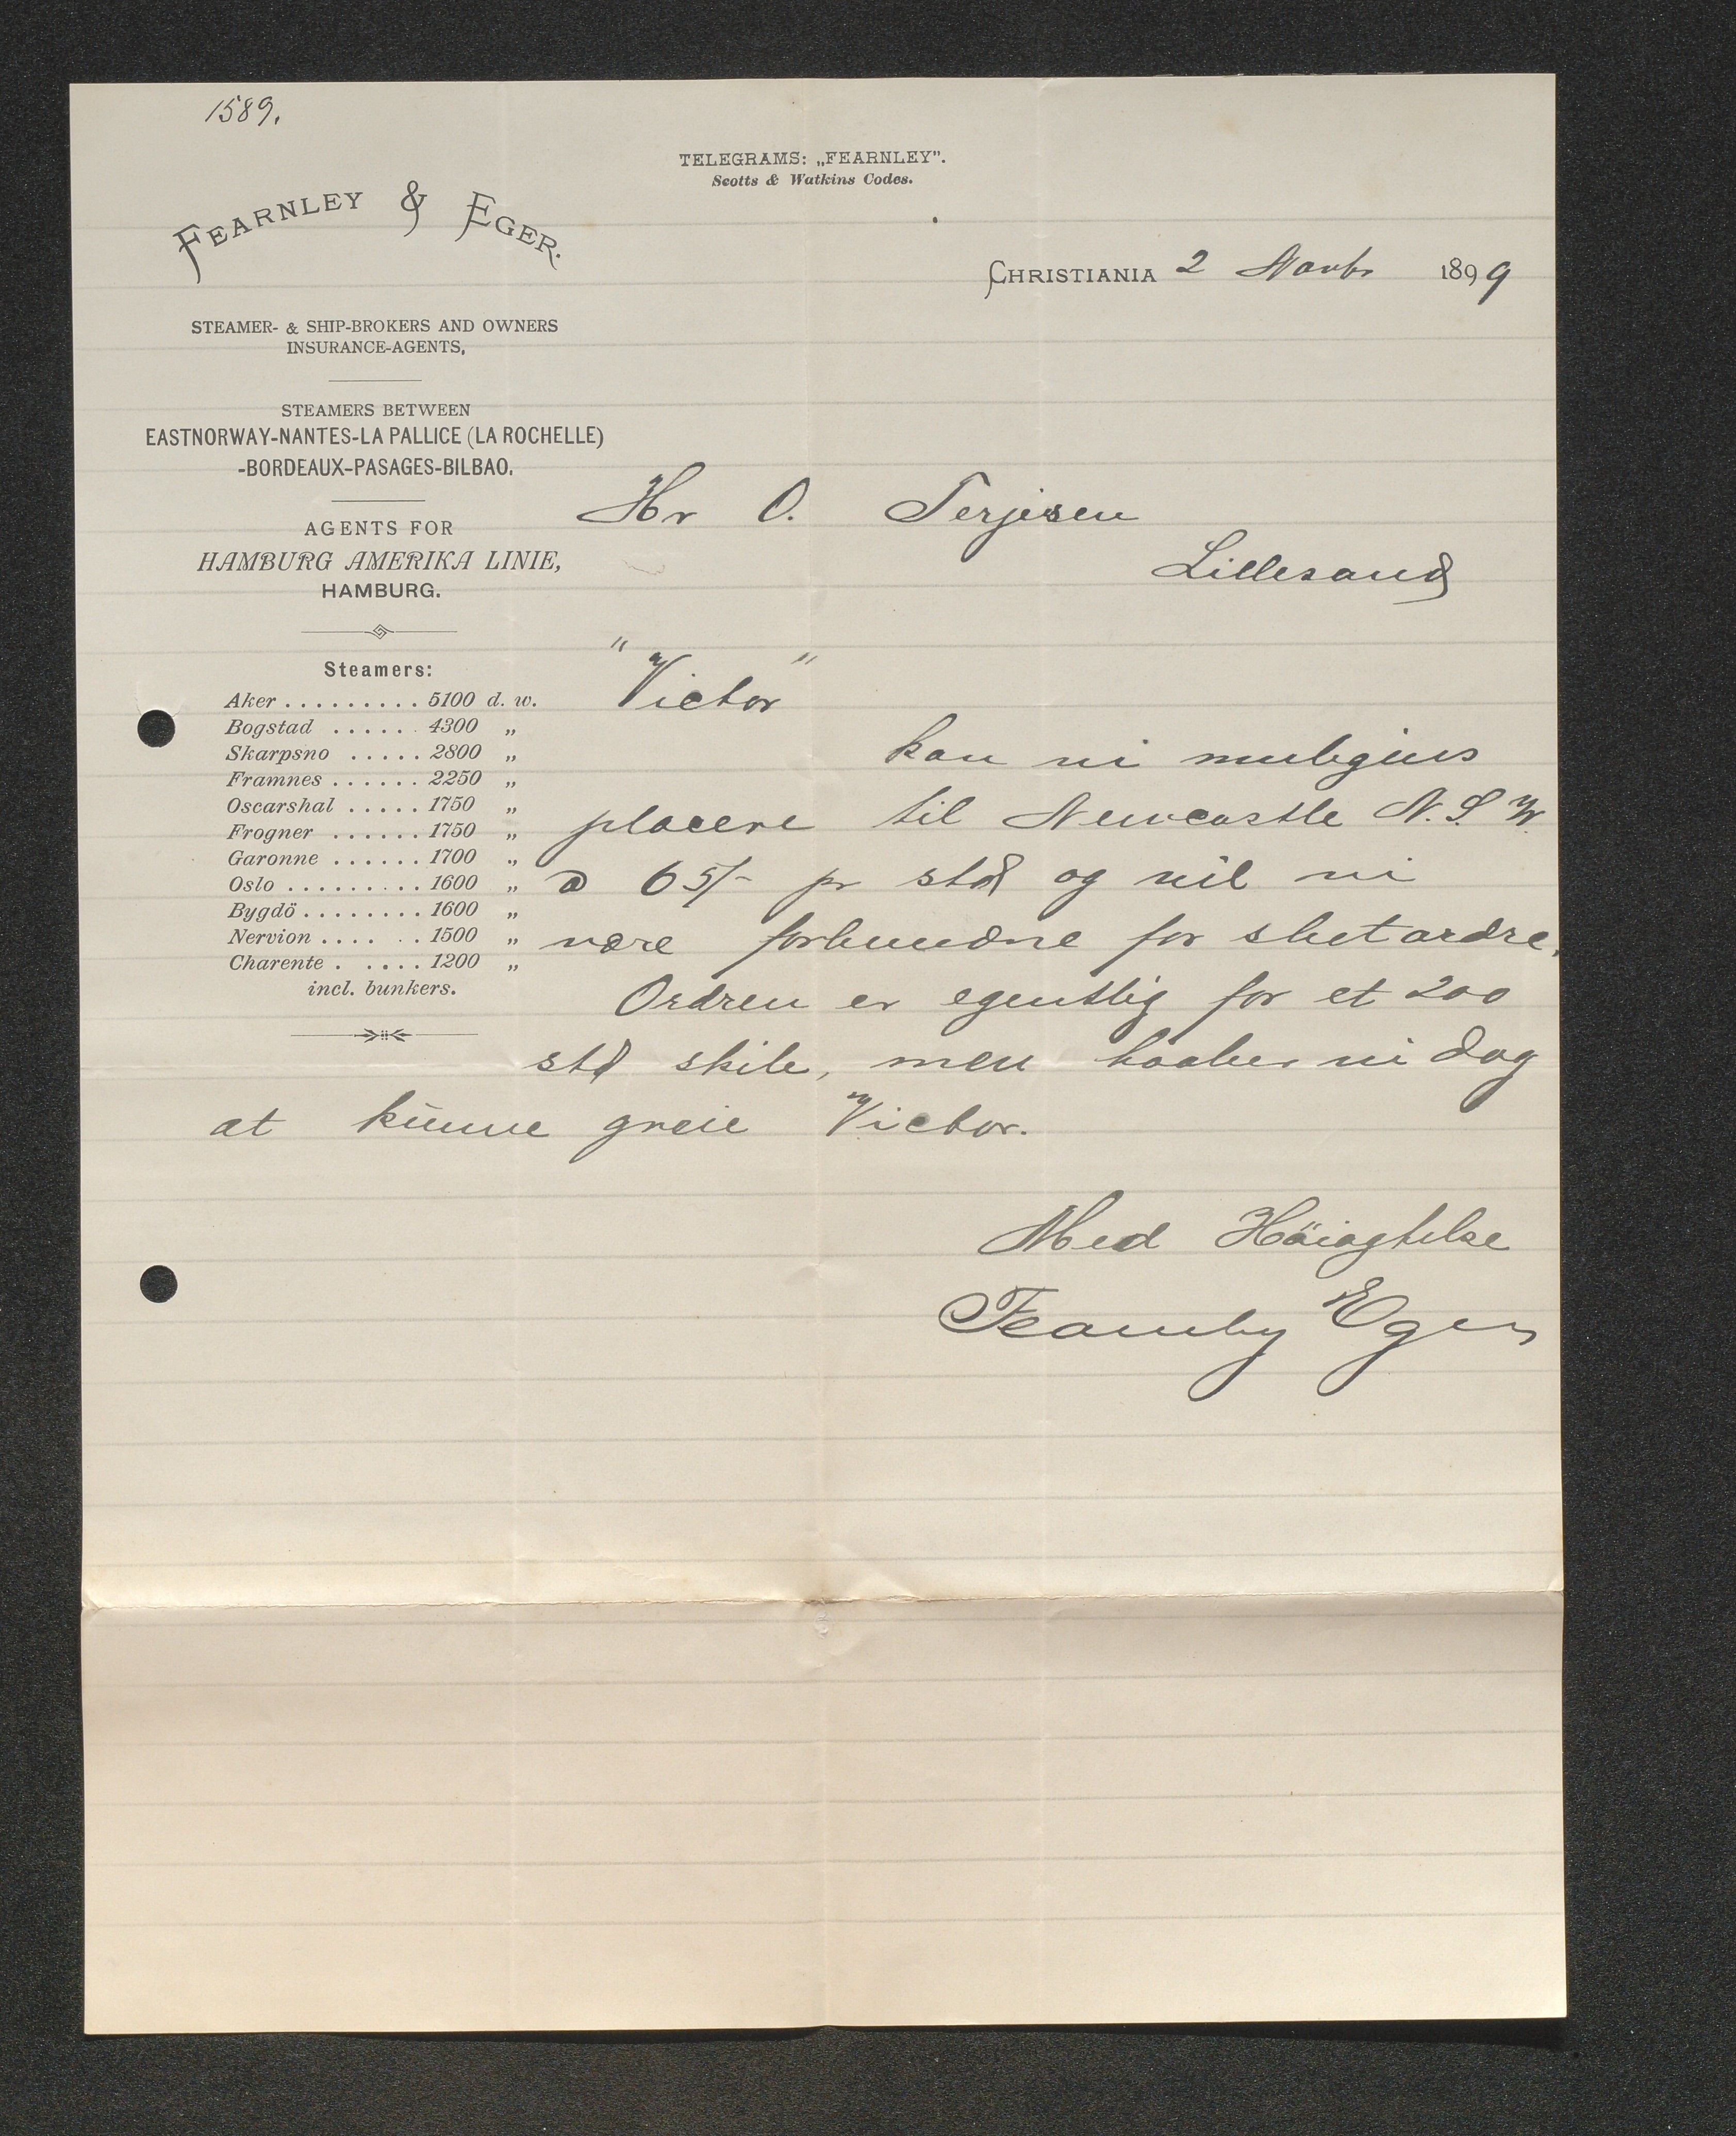 1589.
TELEGRAMS: „FEARNLEY”.
Scotts & Watkins Codes.
FEARNLEY & EGER.
CHRISTIANIA 2 Novbr 1899
STEAMER- & SHIP-BROKERS AND OWNERS
INSURANCE-AGENTS,
STEAMERS BETWEEN
EASTNORWAY-NANTES-LA PALLICE (LA ROCHELLE)
-BORDEAUX-PASAGES-BILBAO.
AGENTS FOR
HAMBURG AMERIKA LINIE,
HAMBURG.
Steamers:
Aker ......... 5100 d. w.
Bogstad ...... 4300 „
Skarpsno ..... 2800 „
Framnes ...... 2250 „
Oscarshal ..... 1750 „
Frogner ...... 1750 „
Garonne ...... 1700 „
Oslo .......... 1600 „
Bygdö ........ 1600 „
Nervion .... . . 1500 „
Charente . .... 1200 „
incl. bunkers.
Hr O. Terjesen
Lillesand
"Victor"
kan vi muligens
placere til Newcastle N.S.W.
a 65/- pr std og vil vi
være forbundne for slutordre.
Ordren er egentlig for et 200
std skib, men haaber vi dog
at kunne greie Victor.
Med Höiagtelse
Fearnley Eger